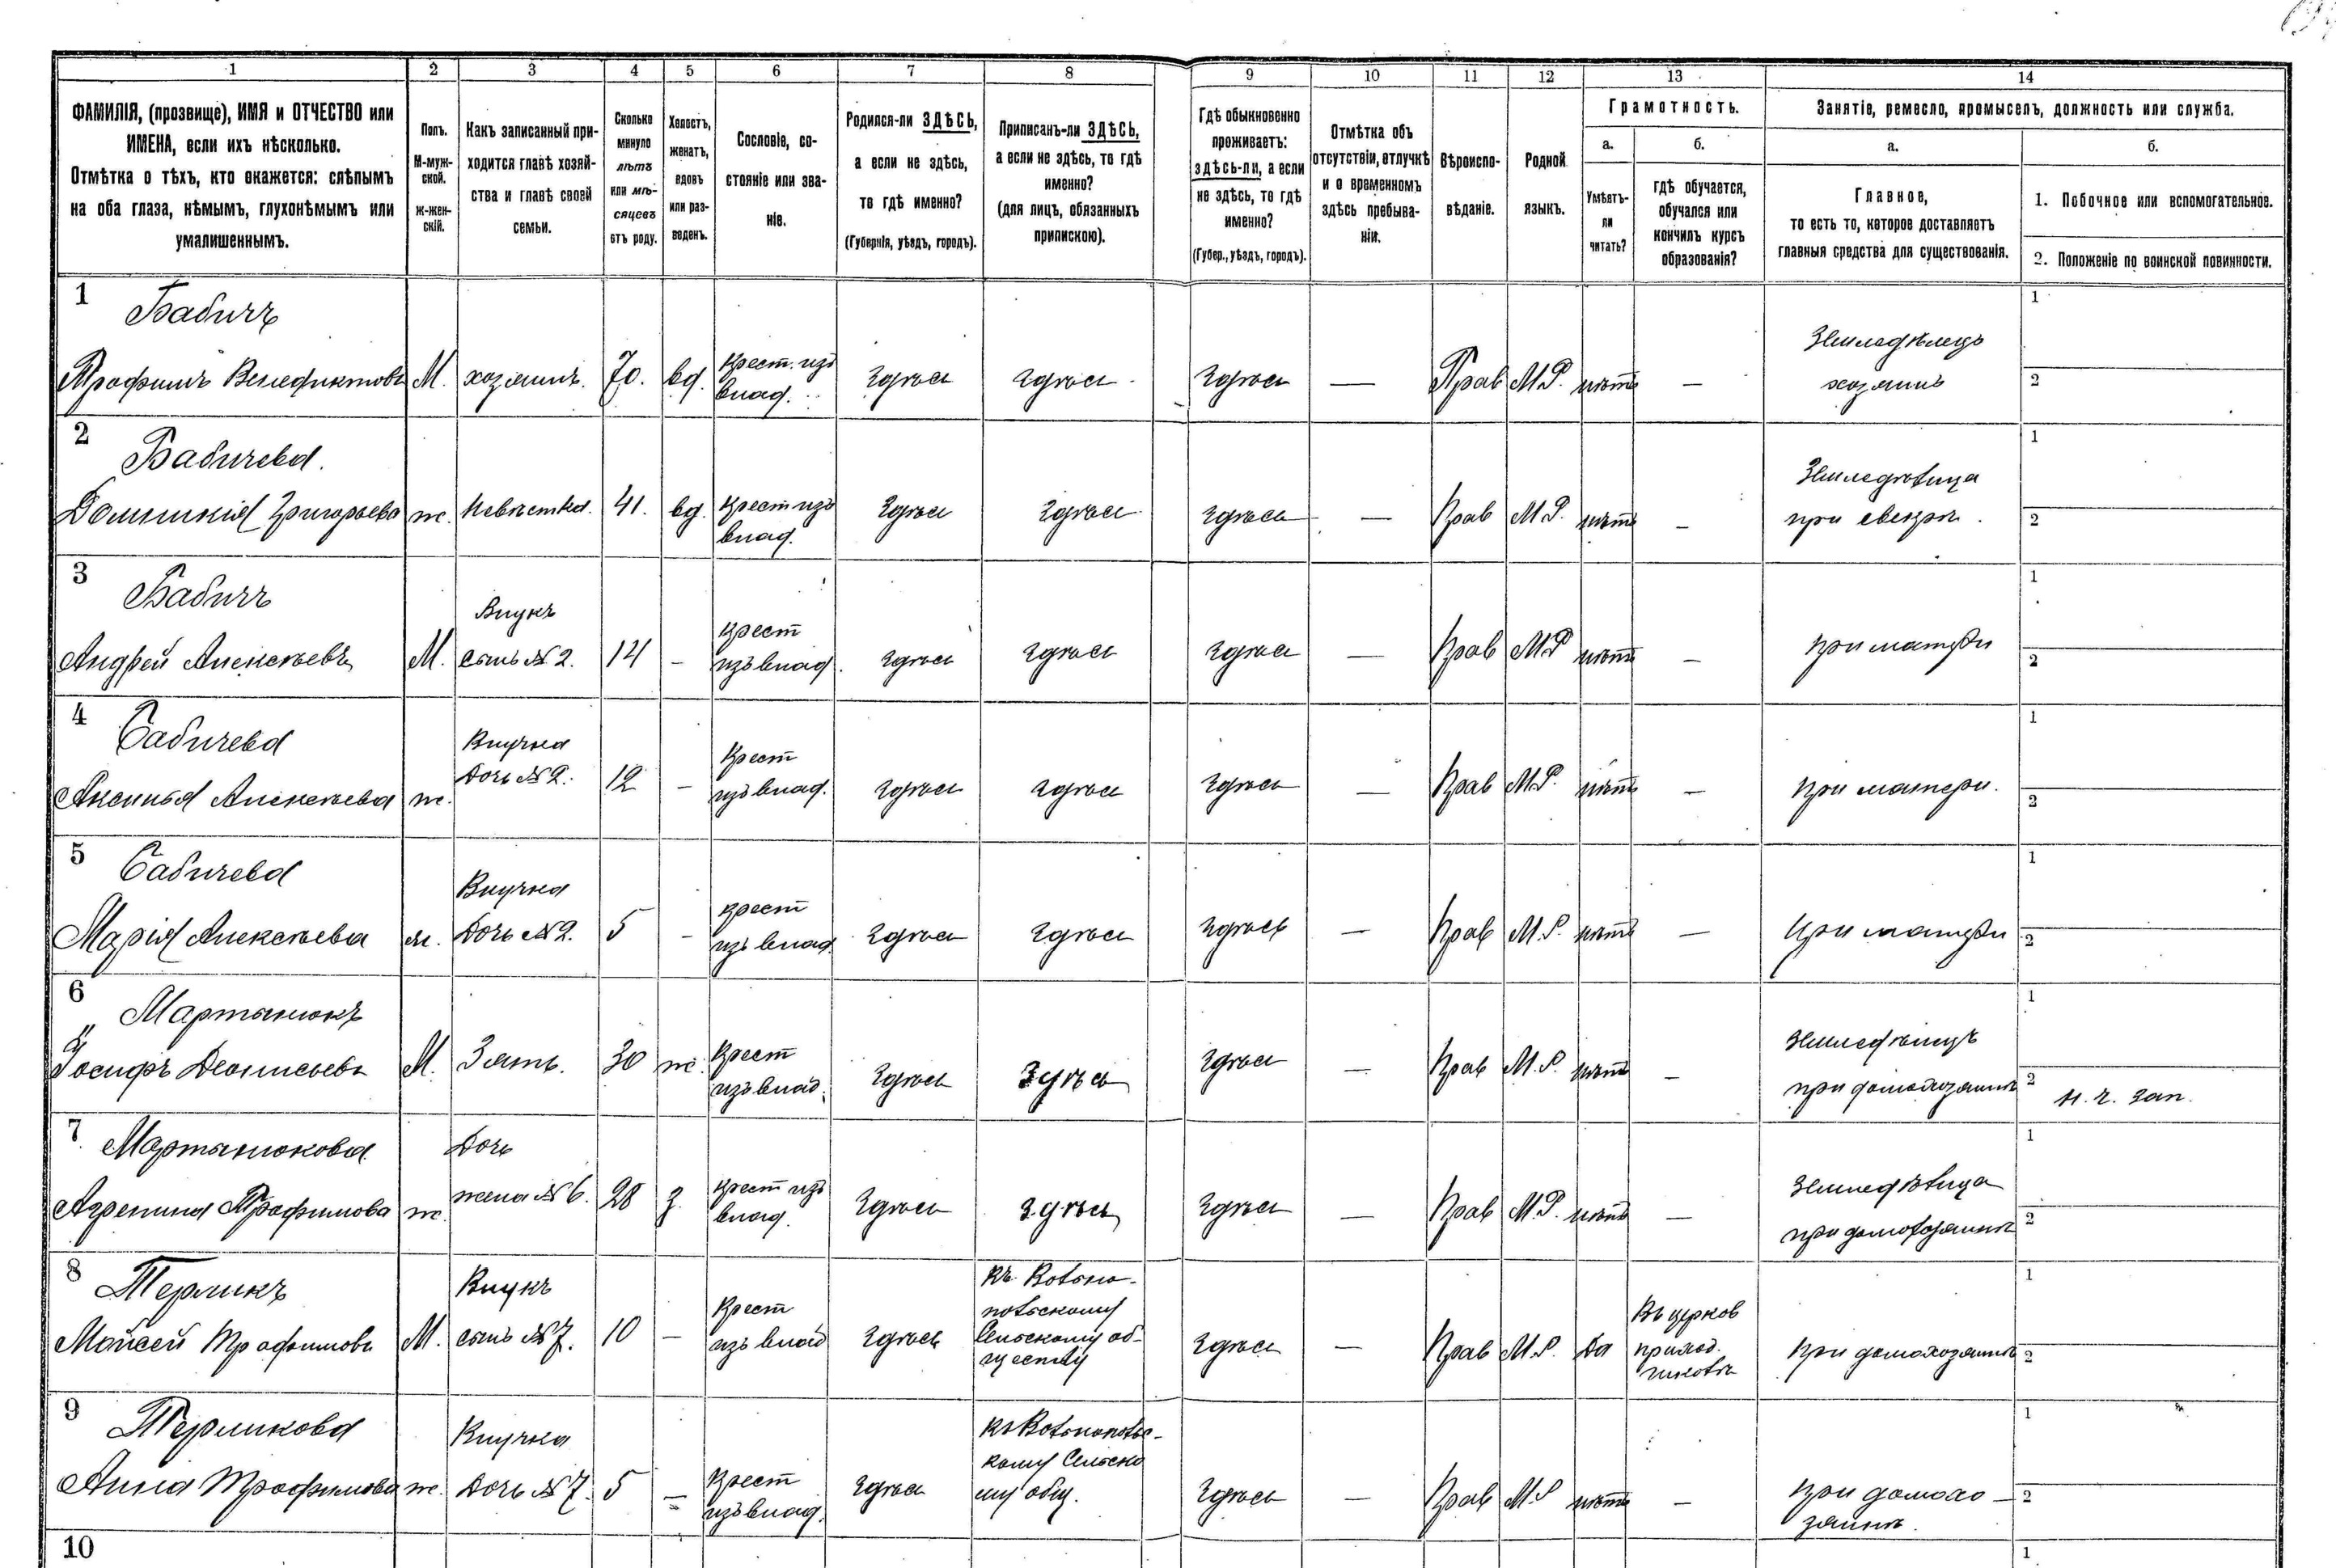 1 2 3 4 5 6 7 8 9 10 11 12 13 14
ФАМИЛІЯ, (прозвище), ИМЯ и ОТЧЕСТВО или
ИМЕНА, если ихъ нѣсколько.
Отмѣтка о тѣхъ, кто окажется: слѣпымъ
на оба глаза, нѣмымъ, глухонѣмымъ или
умалишеннымъ.
Полъ.
М-муж-
ской.
Ж-жен-
скій.
Какъ записанный при-
ходится главѣ хозяй-
ства и главѣ своей
семьи.
Сколько
минуло
лѣтъ
или мѣ-
сяцевъ
отъ роду.
Холостъ,
женатъ,
вдовъ
или раз-
веденъ.
Сословіе, со-
стояніе или зва-
ніе.
Родился-ли ЗДѢСЬ,
а если не здѣсь,
то гдѣ именно?
(Губернія, уѣздъ, городъ).
Приписанъ-ли ЗДѢСЬ,
а если не здѣсь, то гдѣ
именно?
(для лицъ, обязанныхъ
припискою).
Гдѣ обыкновенно
проживаетъ:
здѣсь-ли, а если
не здѣсь, то гдѣ
именно?
(Губер., уѣздъ, городъ).
Отмѣтка объ
отсутствіи, отлучкѣ
и о временномъ
здѣсь пребыва-
ніи.
Вѣроиспо-
вѣданіе.
Родной
языкъ.
Грамотность.
а.
Умѣетъ-
ли
читать?
б.
гдѣ обучается,
обучался или
кончилъ курсъ
образованія?
Занятіе, ремесло, промыселъ, должность или служба.
а.
Главное,
то есть то, которое доставляетъ
главныя средства для существованія.
б.
1. Побочное или вспомогательное.
2. Положеніе по воинской повинности.
1
Бабичъ
Трофимъ Венедиктовъ
М.
хозяинъ.
70.
вд.
крест. изъ
влад.
Здѣсь
Здѣсь
Здѣсь
—
Прав
М.Р.
нѣтъ
—
Земледѣлецъ
хозяинъ
1
2
2
Бабичева.
Домникія Григорьева
ж.
невѣстка.
41.
вд.
крест изъ
влад.
Здѣсь
Здѣсь
Здѣсь
—
Прав
М.Р.
нѣтъ
—
при свекрѣ.
1
2
3
Бабичъ
Андрей Алексѣевъ
М.
Внукъ
сынъ №2.
14
—
крест
изъ влад.
Здѣсь
Здѣсь
Здѣсь
—
Прав
М.Р
нѣтъ
—
при матери
1
2
4
Бабичева
Аксинья Алексѣева
ж.
Внучка
Дочь №2.
12
—
крест
изъ влад.
Здѣсь
Здѣсь
Здѣсь
—
Прав
М.Р.
нѣтъ
—
при матери.
1
2
5
Бабичева
Марія Алексѣева
ж.
Внучка
Дочь №2.
5
—
крест
изъ влад.
Здѣсь
Здѣсь
Здѣсь
—
Прав
М.Р.
нѣтъ
—
При матери
1
2
6
Мартынюкъ
Іосифъ Деонисьевъ
М.
Зять.
30
ж.
крест
изъ влад.
Здѣсь
Здѣсь
Здѣсь
—
Прав
М.Р.
нѣтъ
—
при домохозяинѣ
1
2
н. г. зап.
7
Мартынюкова
Агрепина Трофимова
ж.
Дочь
жена №6.
28
З.
крест изъ
влад.
Здѣсь
Здѣсь
Здѣсь
—
Прав
М.Р.
нѣтъ
—
при домохозяинѣ
1
2
8
Терликъ
Мойсей Трофимовъ
М.
Внукъ
сынъ №7.
10
—
Крест
изъ влад
Здѣсь
Сельскому об-
ществу
Здѣсь
—
Прав
М.Р.
да
Въ церков
приход.
при домохозяинѣ
1
2
9
Терликова
Анна Трофимова
ж.
Внучка
Дочь №7.
5
—
Крест
изъ влад.
Здѣсь
кому Сельско
му общ.
Здѣсь
—
Прав
М.Р
нѣтъ
—
при домохо—
зяинѣ.
1
2
10
1